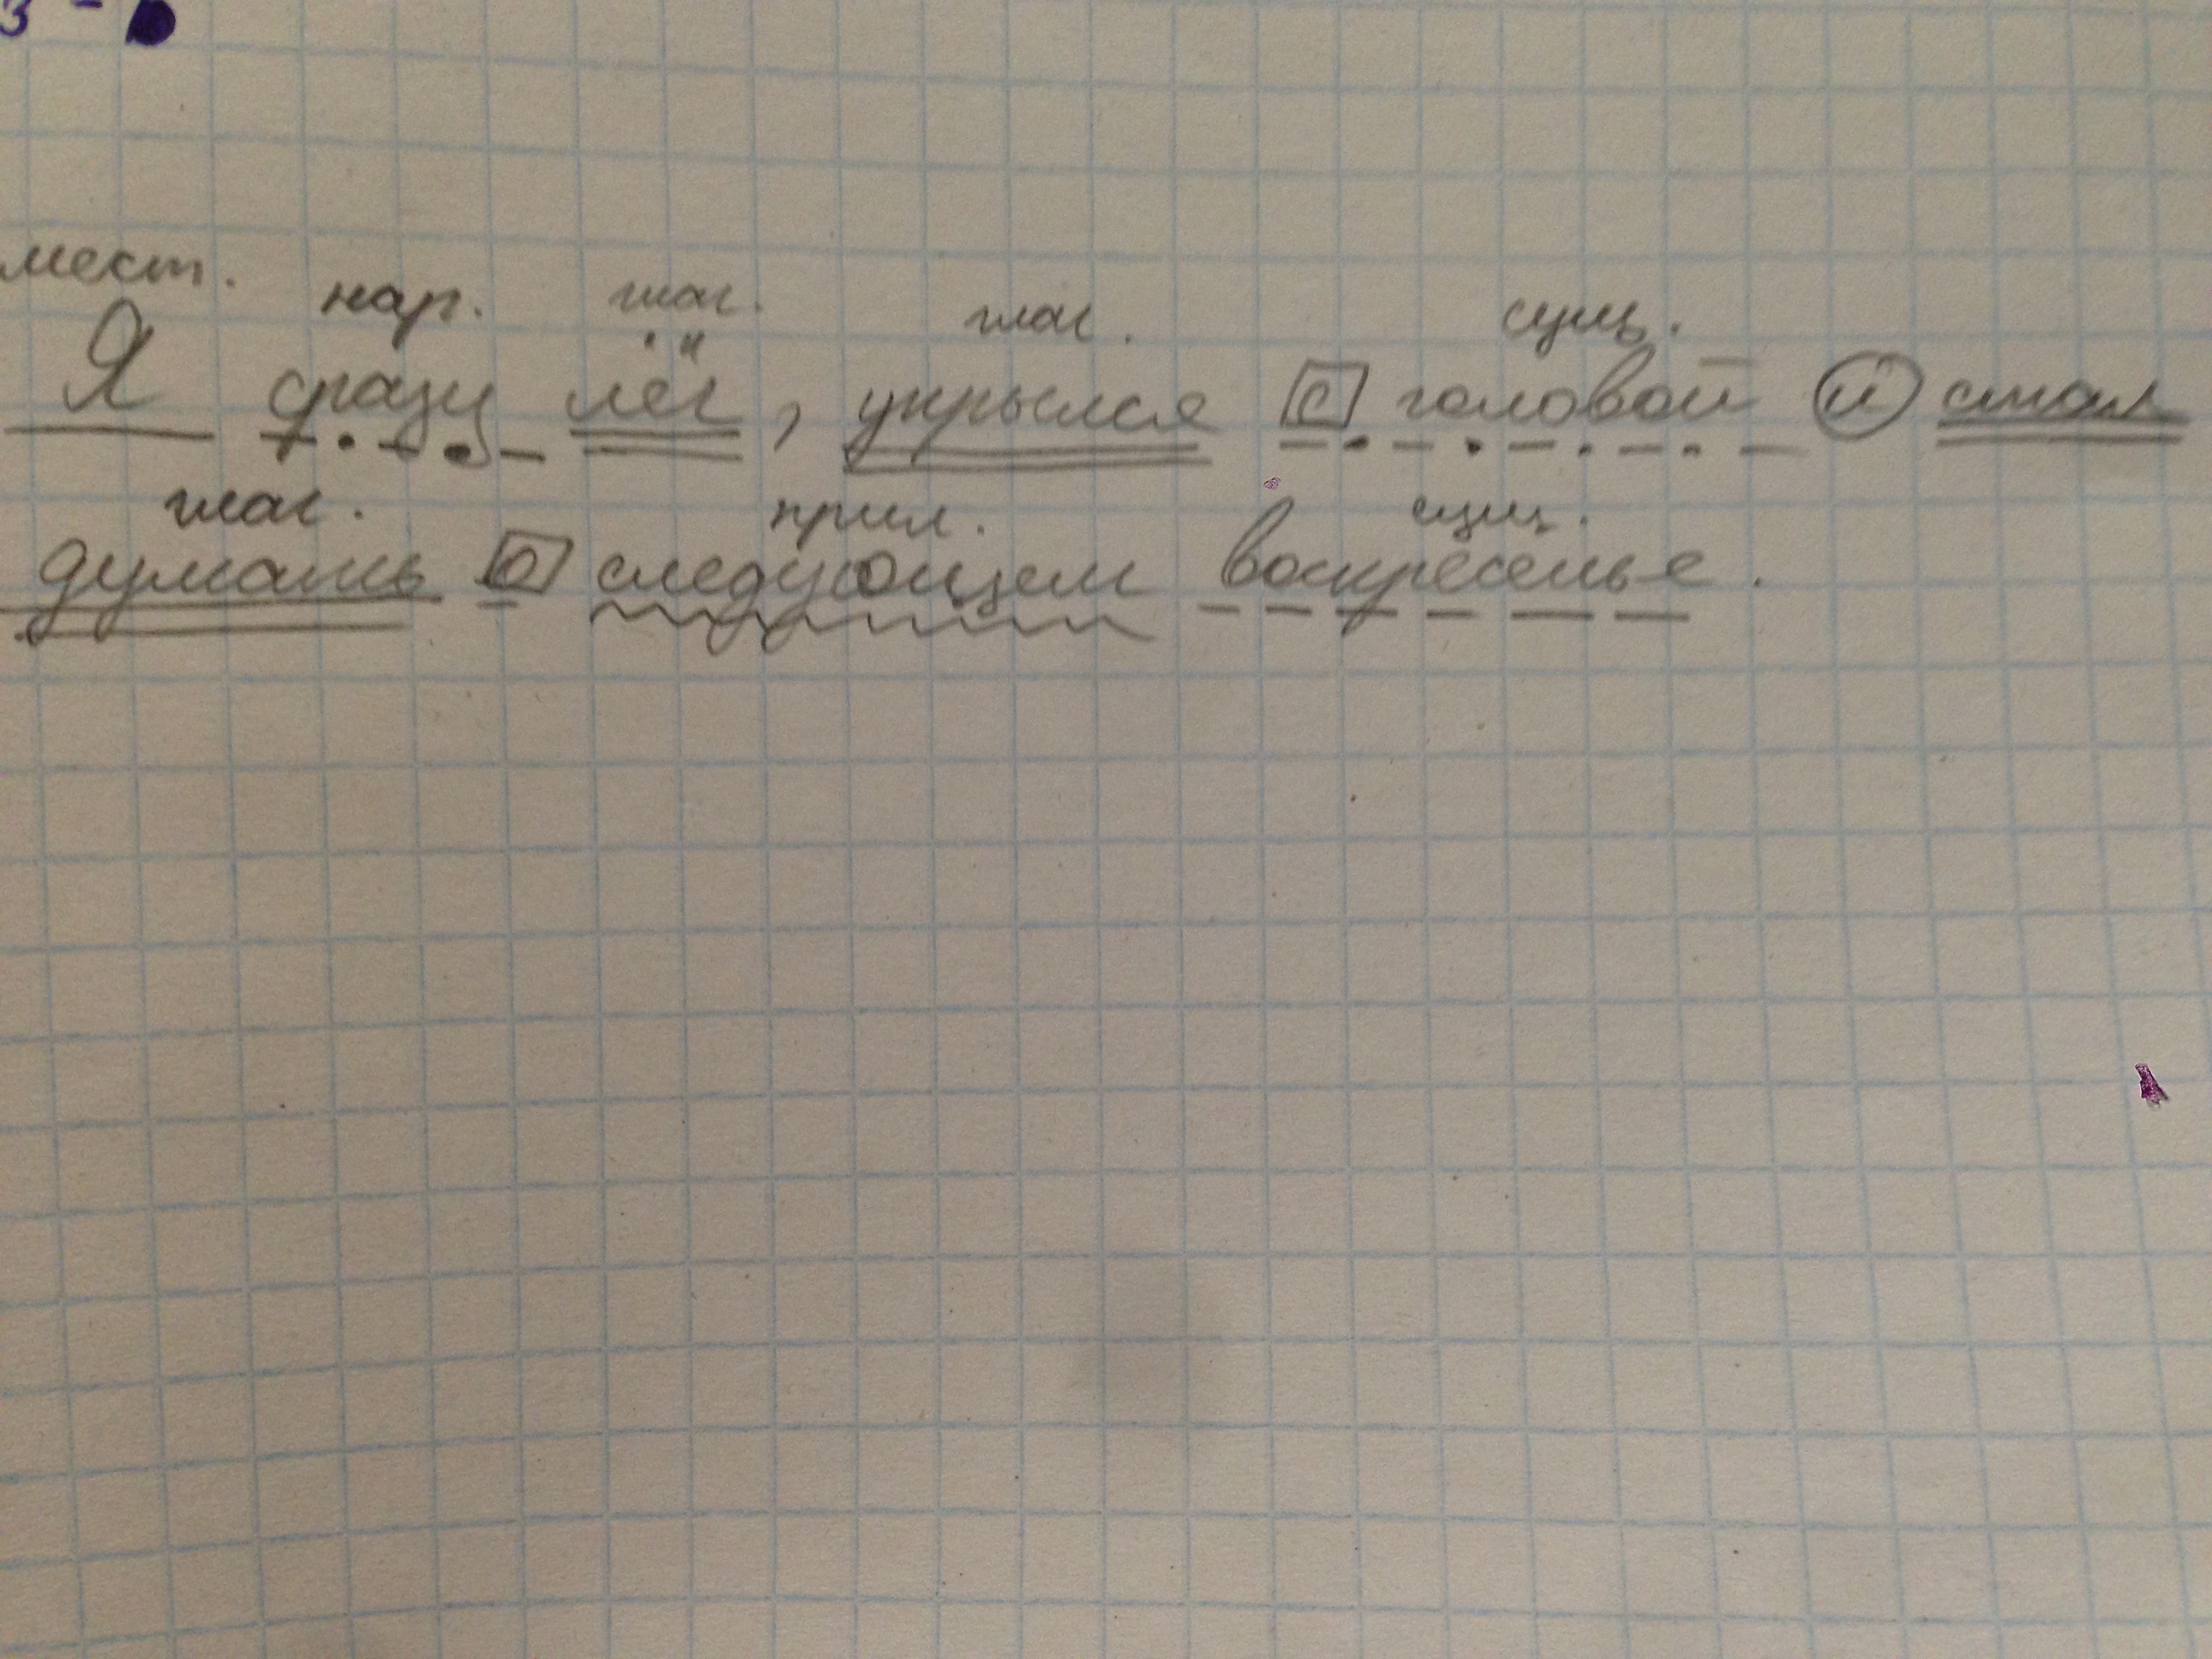 3 -
мест. нар. глаг. глаг. сущ.
Я сразу лёг, укрылся с головой и стал
глаг. прил. сущ.
думать о следующем воскресенье.